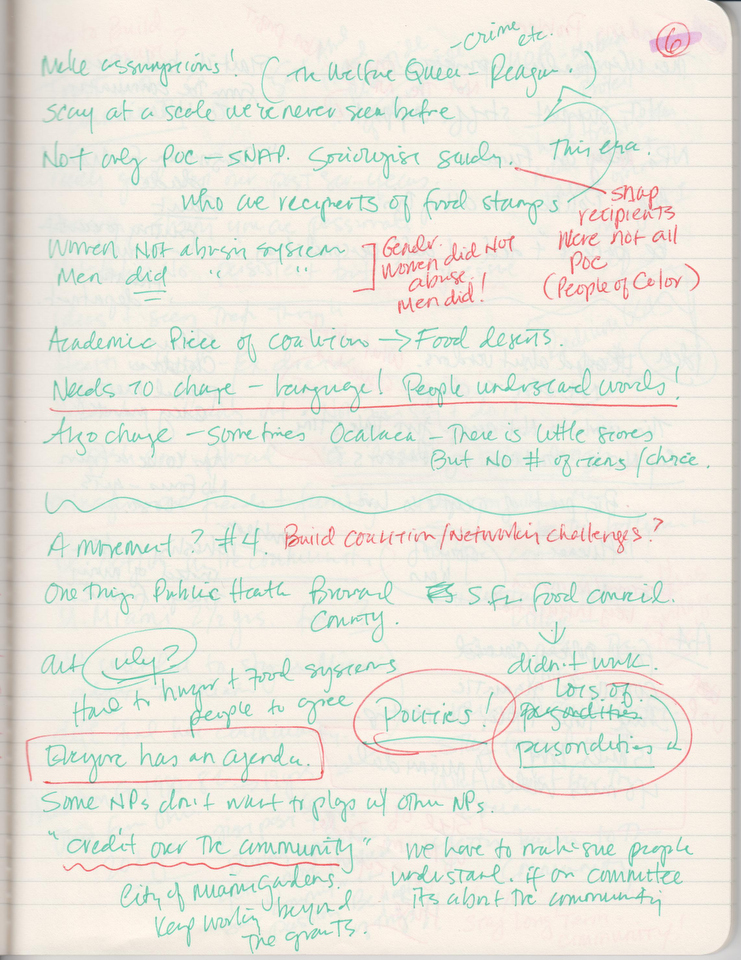 6
- crime etc.
Make assumptions! (The Welfare Queen - Reagan.)
at a scale we're never seen before
Not only POC - SNAP. Sociologist study. This era.
Who are recipients of food stamps
snap
recipients
Were not all
POC
(People of Color)
Women Not abusing system
Men did " "
Gender.
Women did Not
abuse.
Men did!
Academic Piece of coalition → Food deserts.
Needs to change - Language! People understand words!
Also change - Sometimes - There is little stores
But NO # of /choice.
A movement? #4. Build Coalition/Networking challenges?
One thing Public Heath Broward S. Fl. Food Council.
County.
↓
didn't work.
why?
Hard to hunger + Food systems
people to agree
Politics!
lots of
personalities
personalities
Everyone has an agenda.
Some NPs don't want to play w/ other NPs.
"Credit over the community"
City of Miami Gardens.
Keep working beyond
the grants.
We have to make sure people
understand. if on committee
its about the community